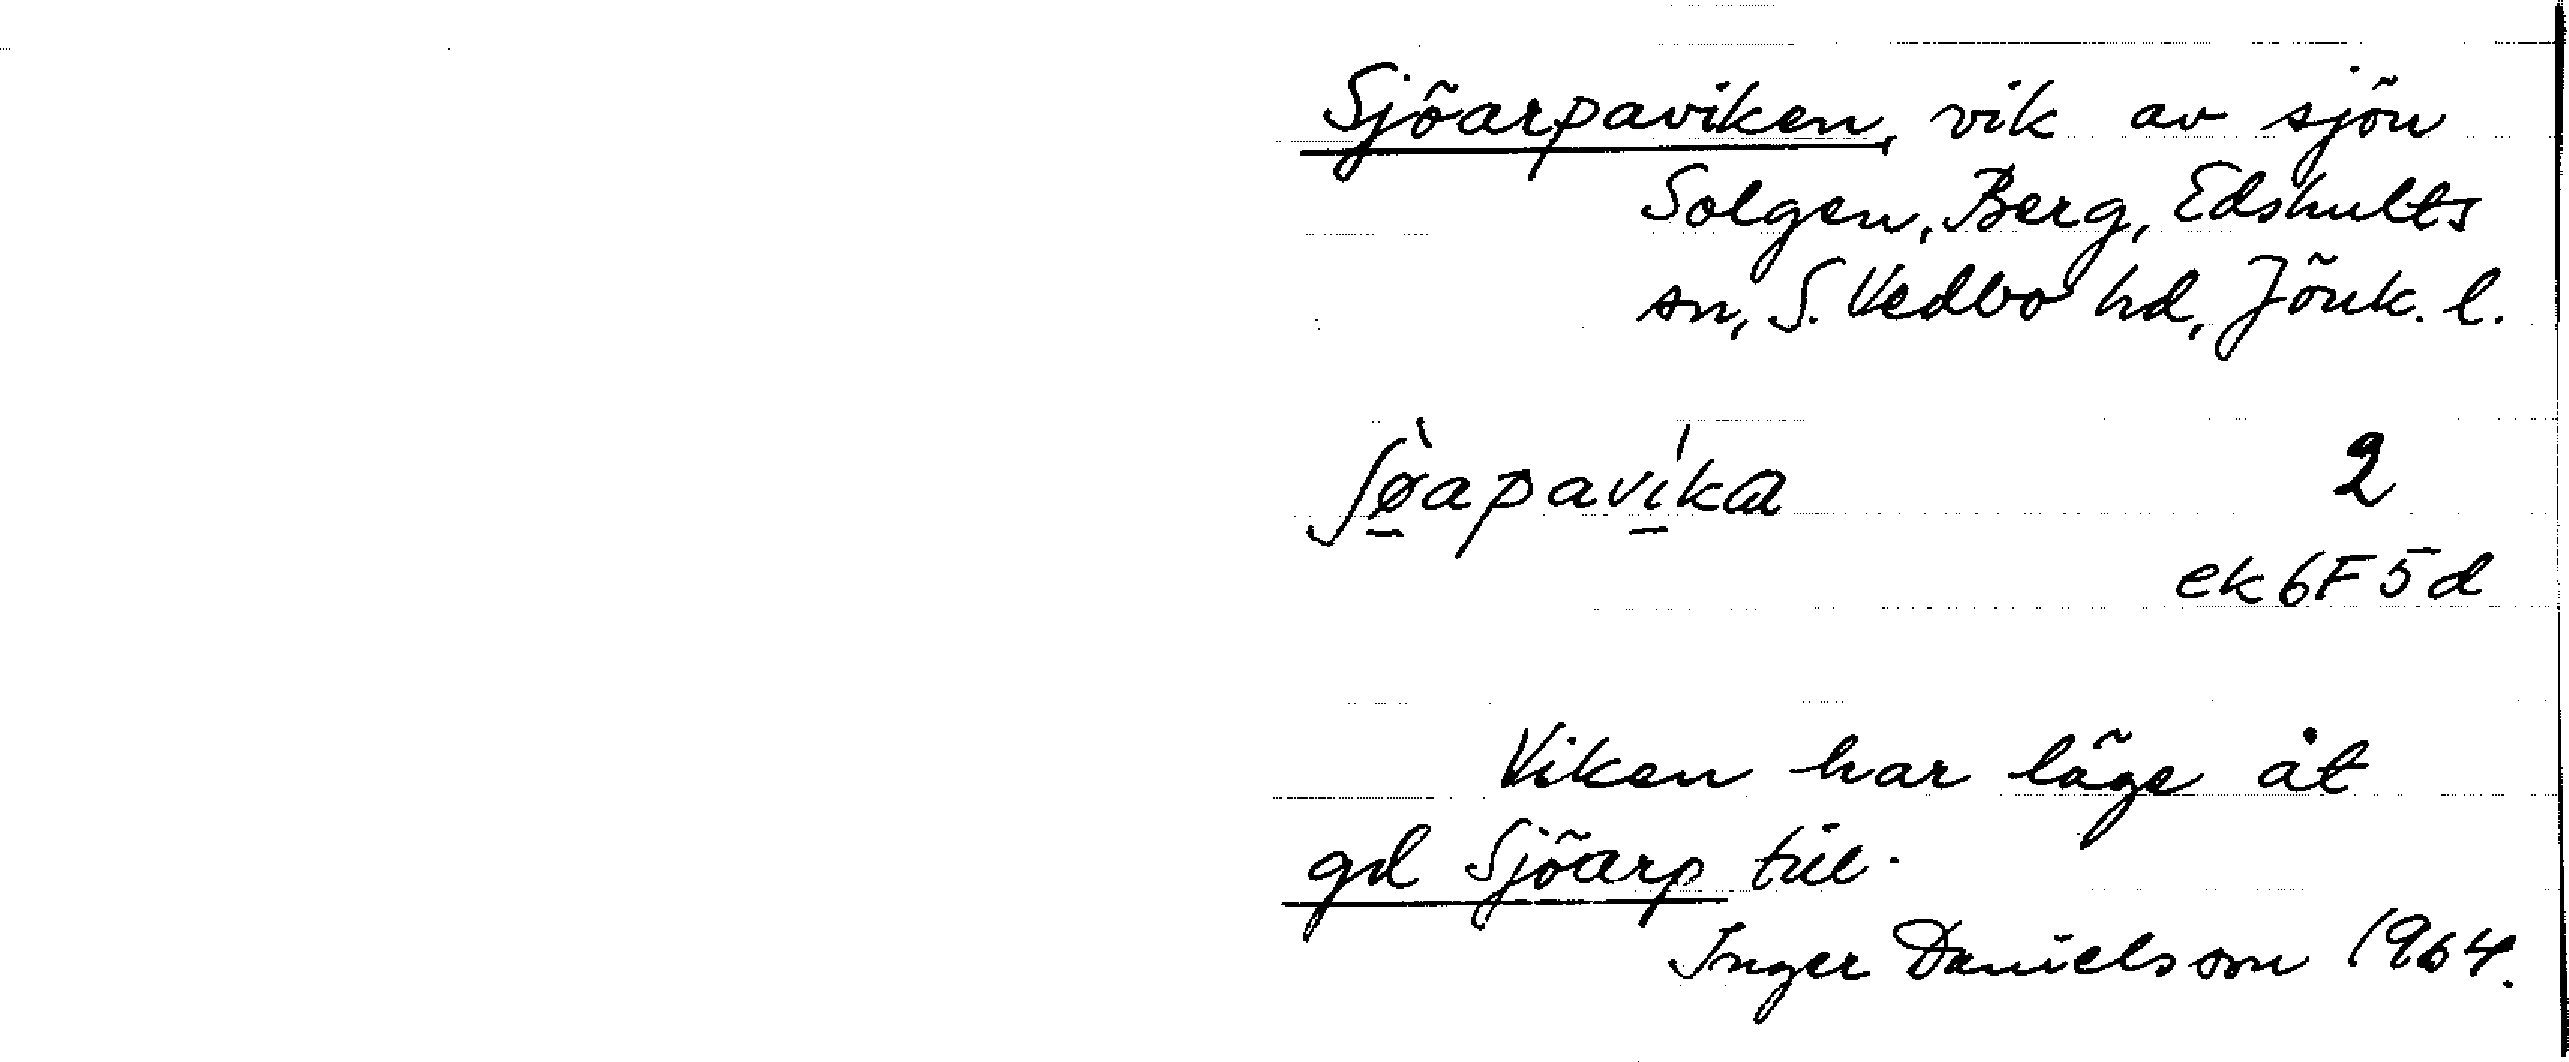 Sjöarpaviken, vik av sjön
Solgen, Berg, Edshults
sn, S. Vedbo hd, Jönk. l.
ʃø̠̀apaví̠ka 2
ek 6F 5d
Viken har läge åt
gd Sjöarp till.
Inger Danielsson 1964.